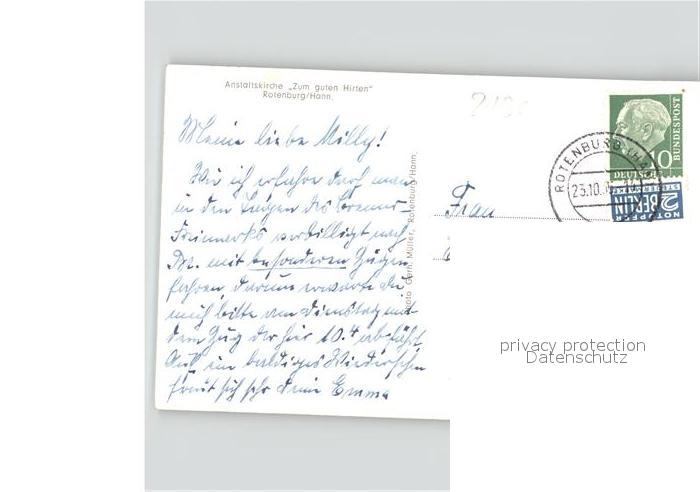 Anstaltskirche „Zum guten Hirten"
Rotenburg/Hann.
Meine liebe Milly!
Wie ich erfahre darf man
in den Tagen des Bremer-
Freimarks verbilligt nach
Br. mit besonderen Zügen
fahren, darum erwarte du
mich bitte am Dienstag mit
dem Zug der hier 10.4 abfährt.
Auf ein baldiges Wiedersehen
freut sich sehr deine Emma
Photo Gerh. Müller, Rotenburg/Hann.
Frau
ROTENBURG (HAN
23.10.
10
DEUTSCHE
BUNDESPOST
NOTOPFER
2 BERLIN
STEUERMARKE
privacy protection
Datenschutz